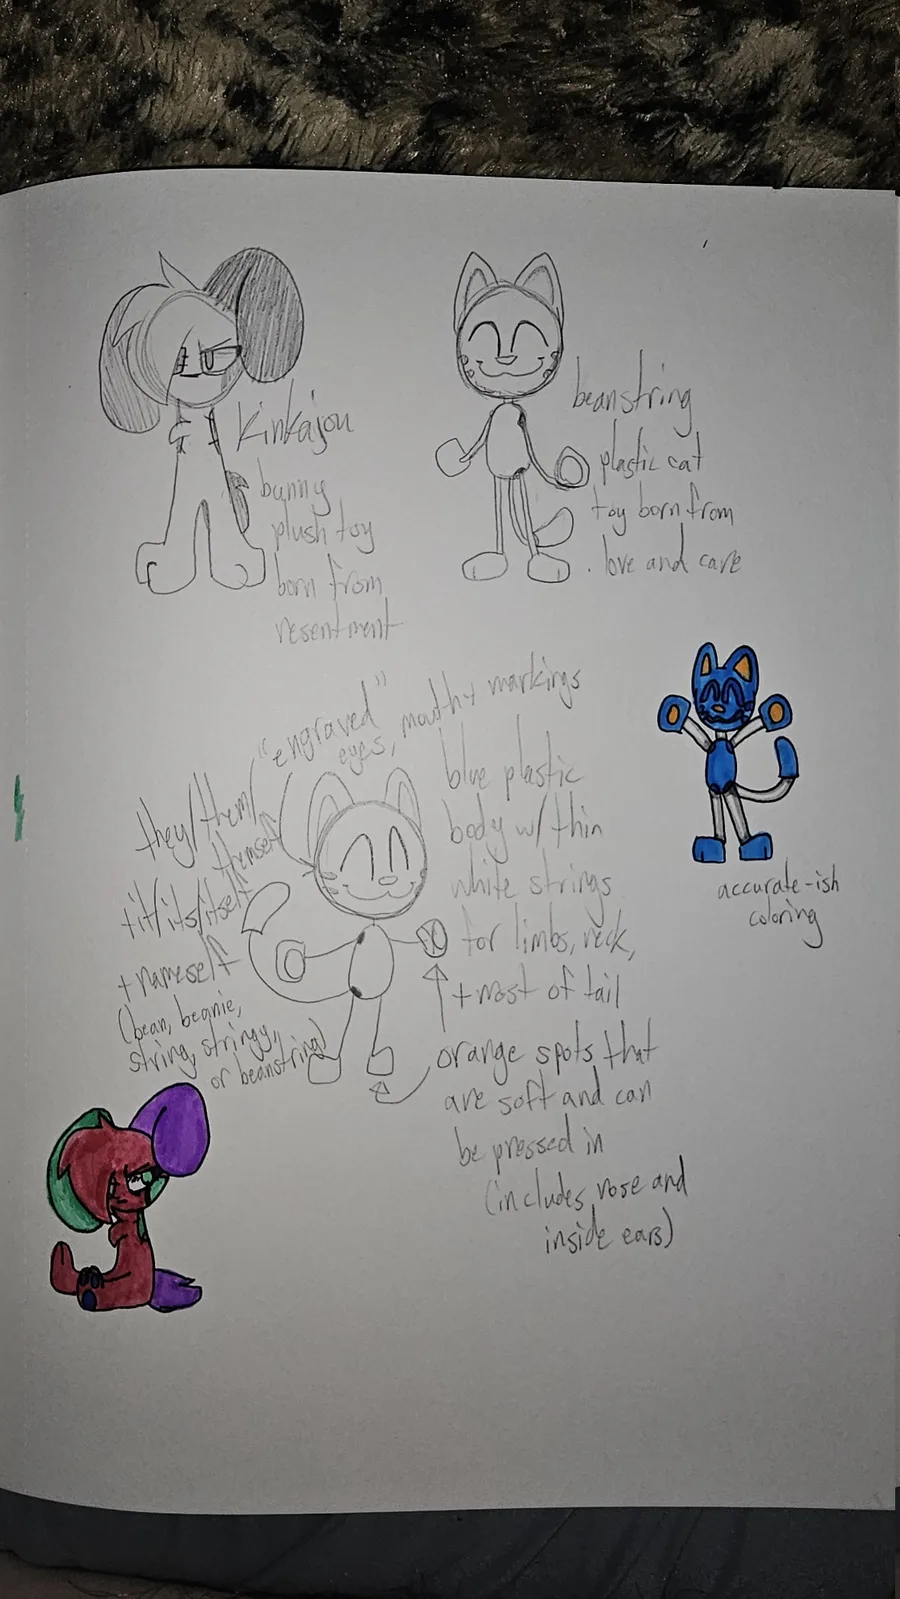 kinkajou
bunny
plush toy
born from
resentment
beanstring
plastic cat
toy born from
love and care
"engraved"
eyes, mouth + markings
they/them/
themself
+it/its/itself
+nameself
(bean, beanie,
string, stringy,
or beanstring)
blue plastic
body w/ thin
white strings
for limbs, neck,
+most of tail
orange spots that
are soft and can
be pressed in
(includes nose and
inside ears)
accurate-ish
coloring